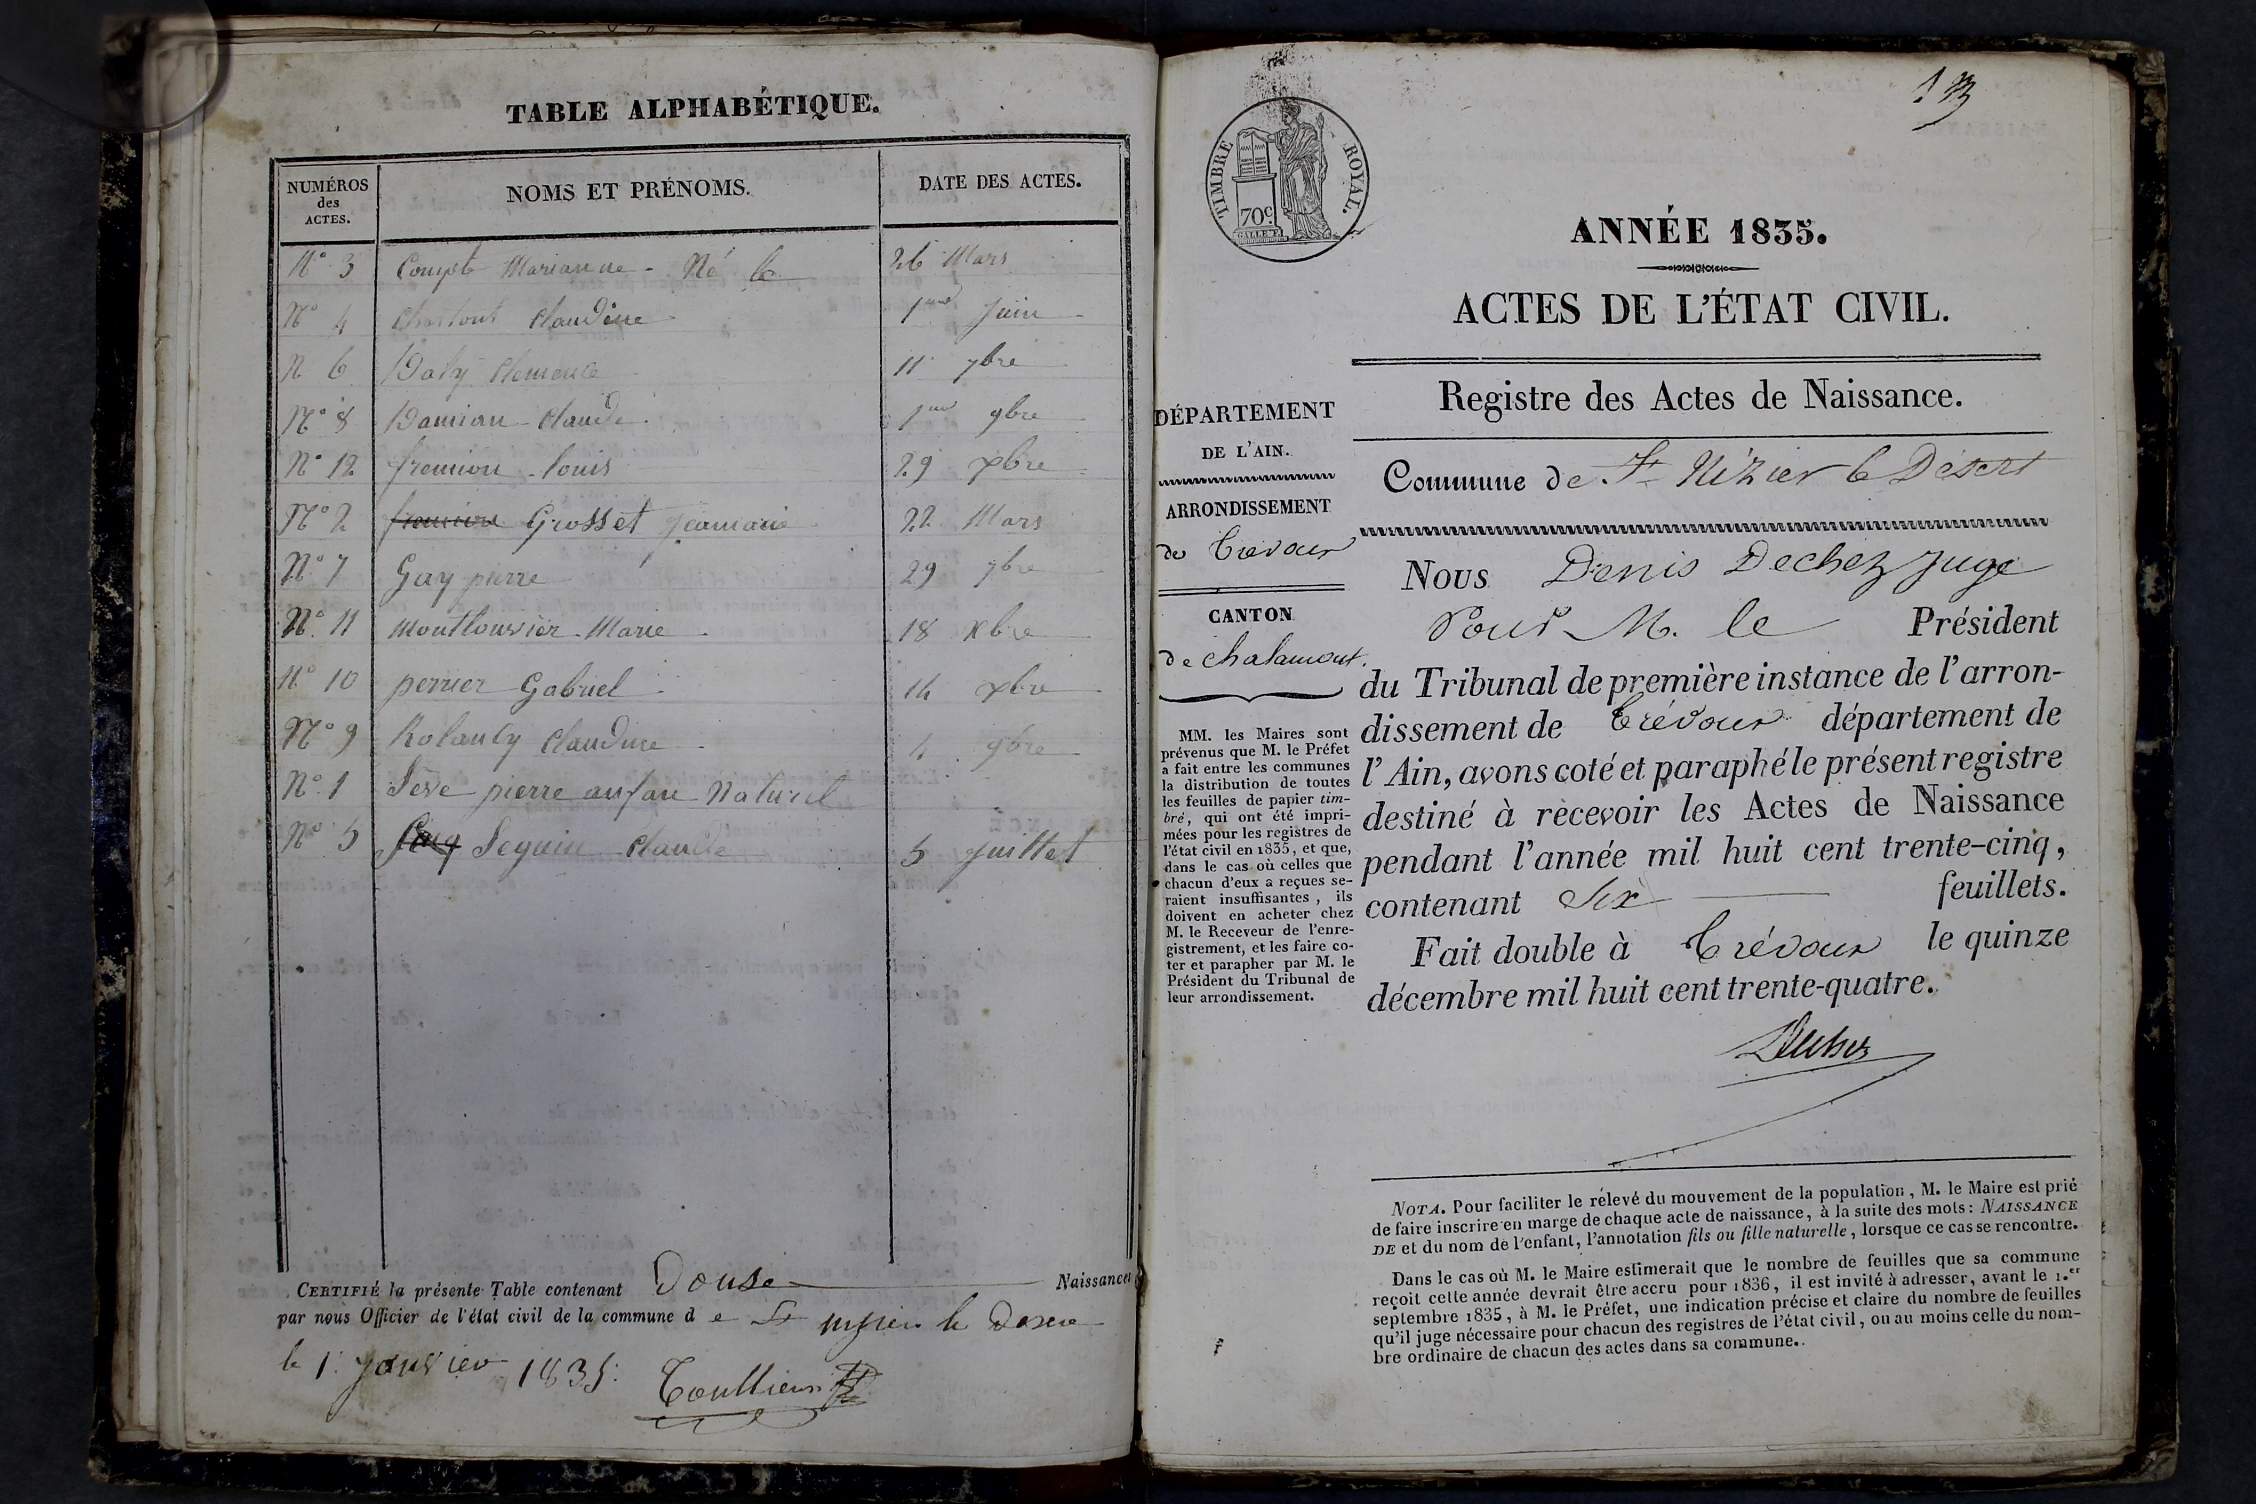 TABLE ALPHABÉTIQUE.
NUMÉROS
des
ACTES.
NOMS ET PRÉNOMS.
DATE DES ACTES.
N° 3 Compte Marianne - Né le 26 Mars
N° 4 Claudine 1er Juin
N 6 Baty Clemence 11 7bre
N° 8 Damian Claude 1er 9bre
N° 12 fremion louis 29 xbre
N° 2 Grosset Jeanmarie 22 Mars
N° 7 Gay pierre 29 7bre
N° 11 Montlouvier Marie 18 xbre
N° 10 perrier Gabriel 14 xbre
N° 9 Claudine 4 9bre
N° 1 Séve pierre anfan Naturel
N° 5 Seguin Claude 5 Juillet
CERTIFIÉ la présente Table contenant Douse Naissances
par nous Officier de l'état civil de la commune d e St
le 1. Janvier 1835.
13
TIMBRE ROYAL.
70c.
ANNÉE 1835.
ACTES DE L'ÉTAT CIVIL.
Registre des Actes de Naissance.
Commune de St Nizier le Désert
DÉPARTEMENT
DE L'AIN.
ARRONDISSEMENT
de Trévoux
CANTON
de Chalamont.
MM. les Maires sont
prévenus que M. le Préfet
a fait entre les communes
la distribution de toutes
les feuilles de papier tim-
bré, qui ont été impri-
mées pour les registres de
l'état civil en 1835, et que,
dans le cas où celles que
chacun d'eux a reçues se-
raient insuffisantes, ils
doivent en acheter chez
M. le Receveur de l'enre-
gistrement, et les faire co-
ter et parapher par M. le
Président du Tribunal de
leur arrondissement.
Nous Denis Dechez Juge
Pour M. le Président
du Tribunal de première instance de l'arron-
dissement de Trévoux département de
l'Ain, avons coté et paraphé le présent registre
destiné à recevoir les Actes de Naissance
pendant l'année mil huit cent trente-cinq,
contenant Six feuillets.
Fait double à Trévoux le quinze
décembre mil huit cent trente-quatre.
Dechez
NOTA. Pour faciliter le rélevé du mouvement de la population, M. le Maire est prié
de faire inscrire en marge de chaque acte de naissance, à la suite des mots: NAISSANCE
DE et du nom de l'enfant, l'annotation fils ou fille naturelle, lorsque ce cas se rencontre.
Dans le cas où M. le Maire estimerait que le nombre de feuilles que sa commune
reçoit cette année devrait être accru pour 1836, il est invité à adresser, avant le 1.er
septembre 1835, à M. le Préfet, une indication précise et claire du nombre de feuilles
qu'il juge nécessaire pour chacun des registres de l'état civil, ou au moins celle du nom-
bre ordinaire de chacun des actes dans sa commune.